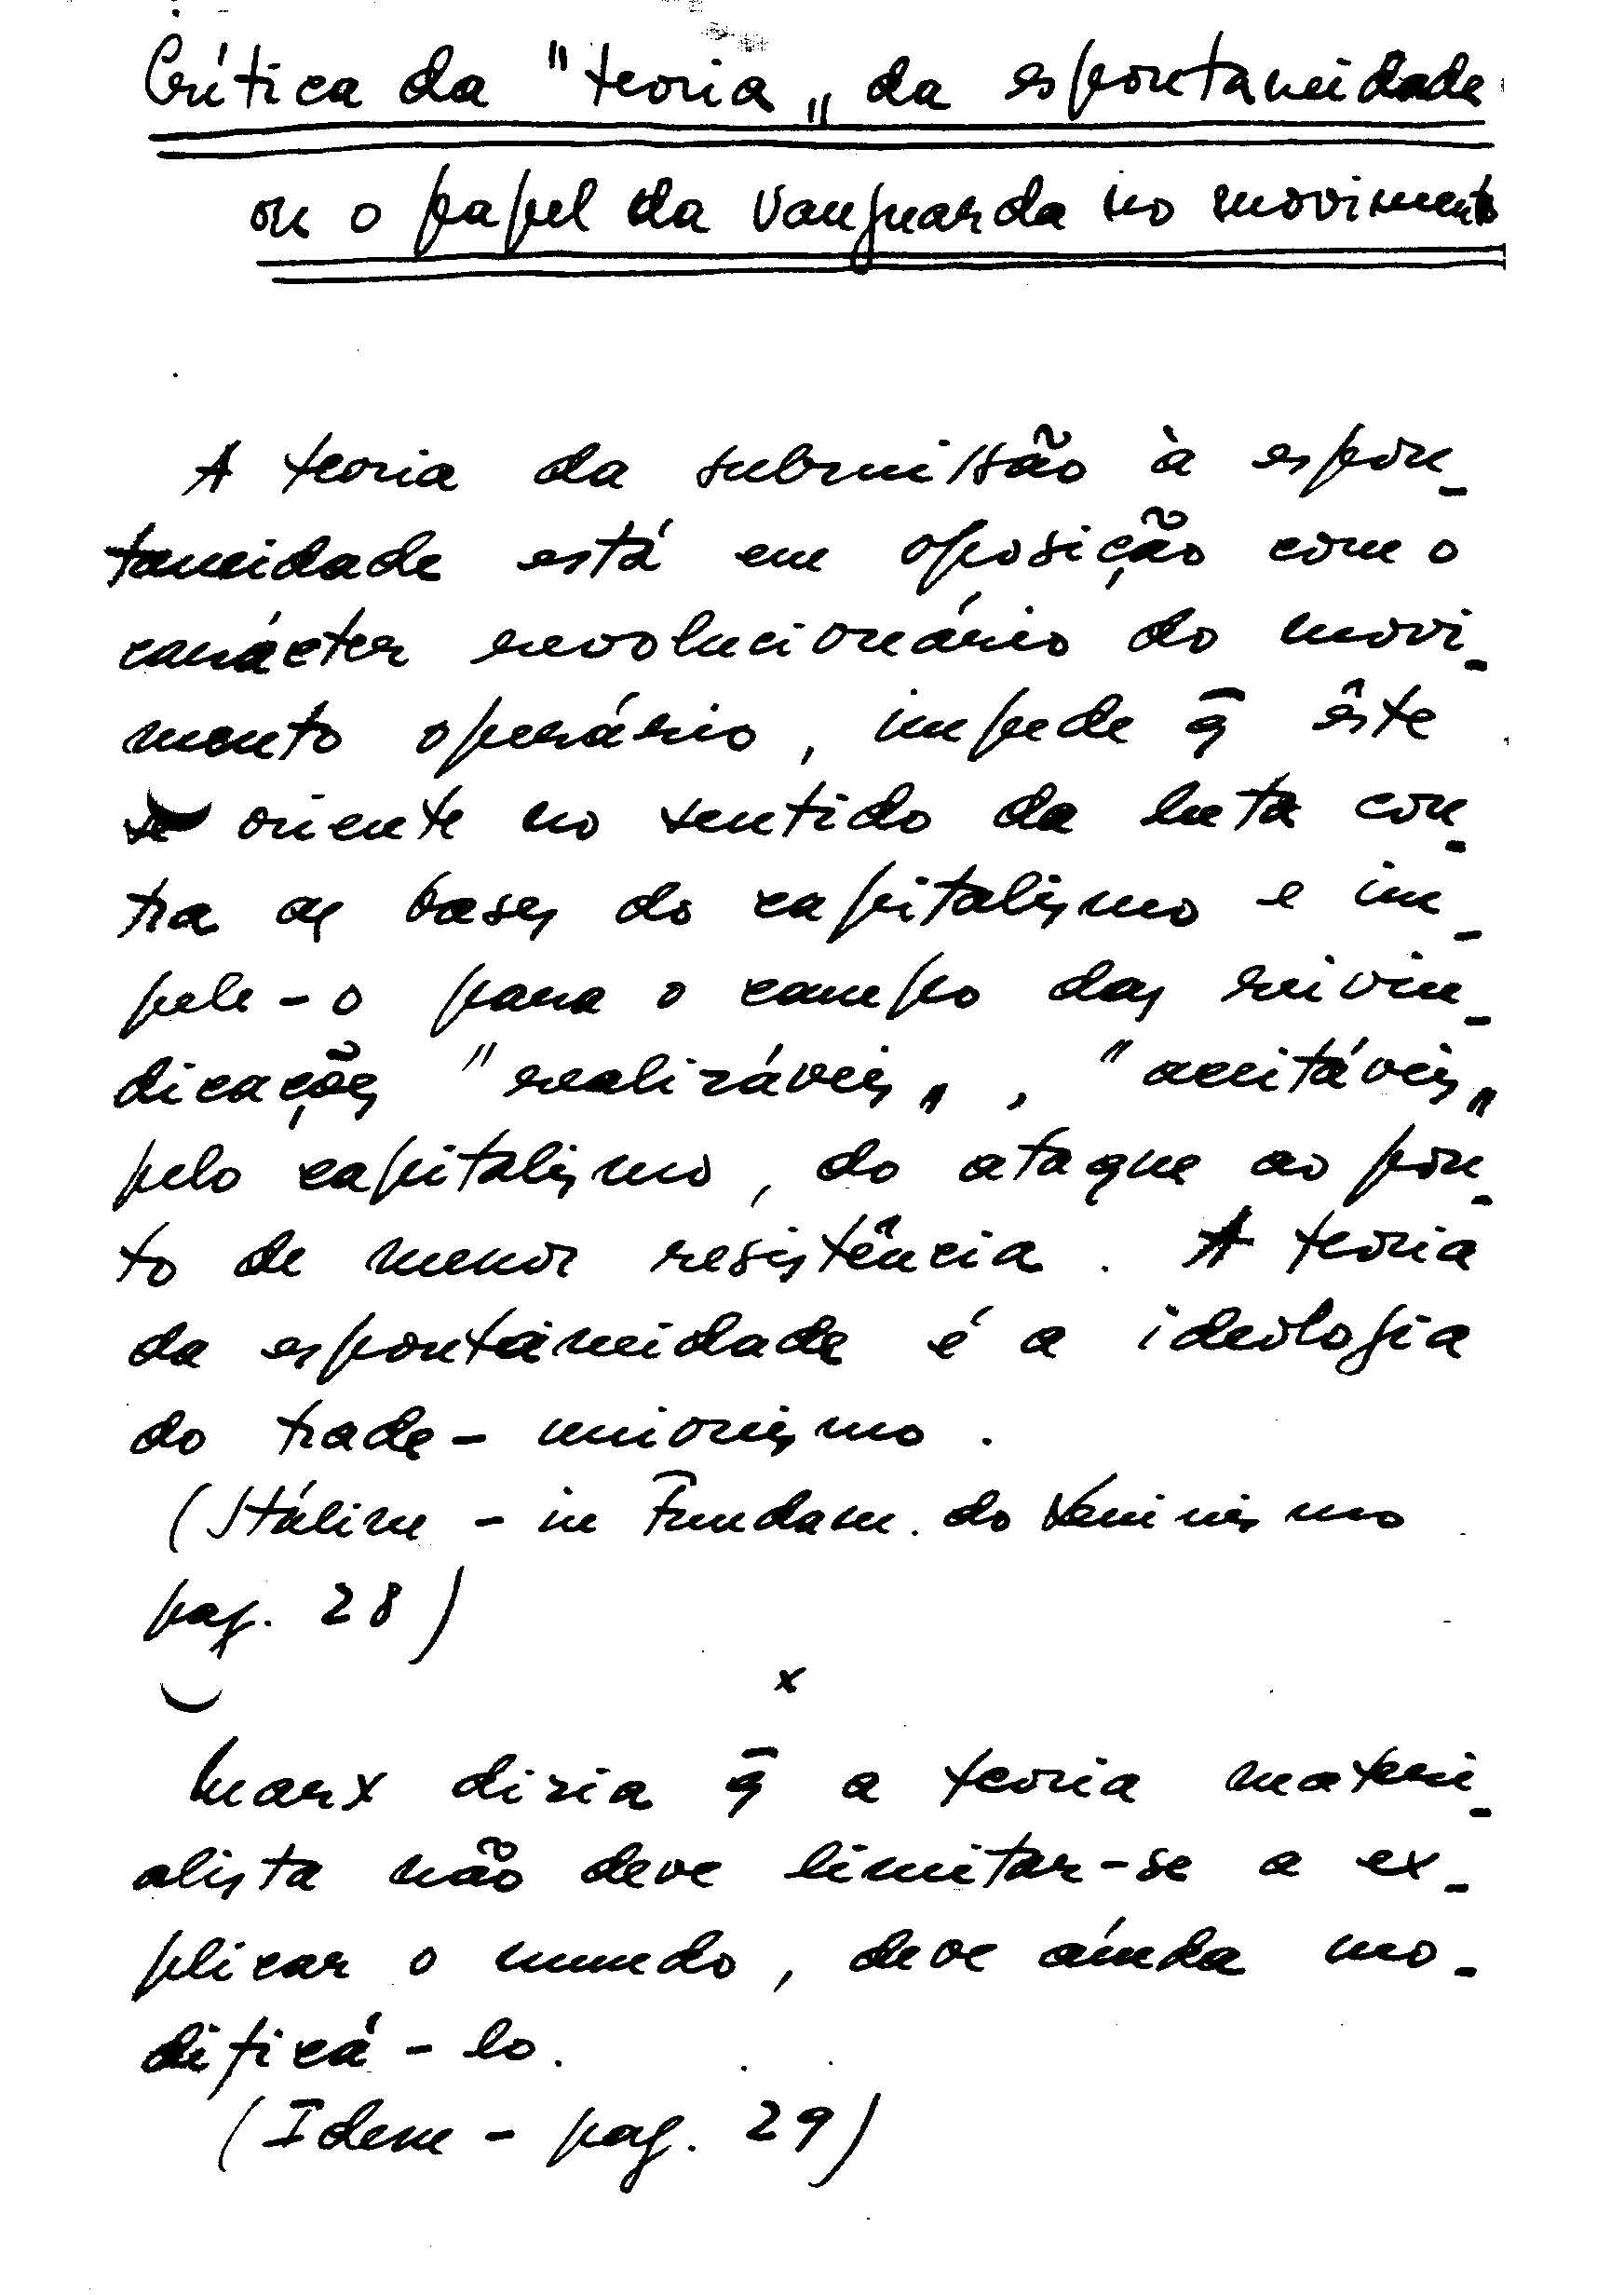 Crítica da "teoria" da espontaneidade
ou o papel da vanguarda no movimento
A teoria da submissão à espon-
taneidade está em oposição com o
carácter revolucionário do movi-
mento operário, impede q̄ êste
se oriente no sentido da luta con-
tra as bases do capitalismo e im-
pele-o para o campo das reivin-
dicações "realizáveis", "aceitáveis"
pelo capitalismo, do ataque ao pon-
to de menor resistência. A teoria
da espontaneidade é a ideologia
do trade-unionismo.
(Stáline - in Fundam. do Leninismo
pag. 28)
x
Marx dizia q̄ a teoria materi-
alista não deve limitar-se a ex-
plicar o mundo, deve aínda mo-
dificá-lo.
(Idem - pag. 29)